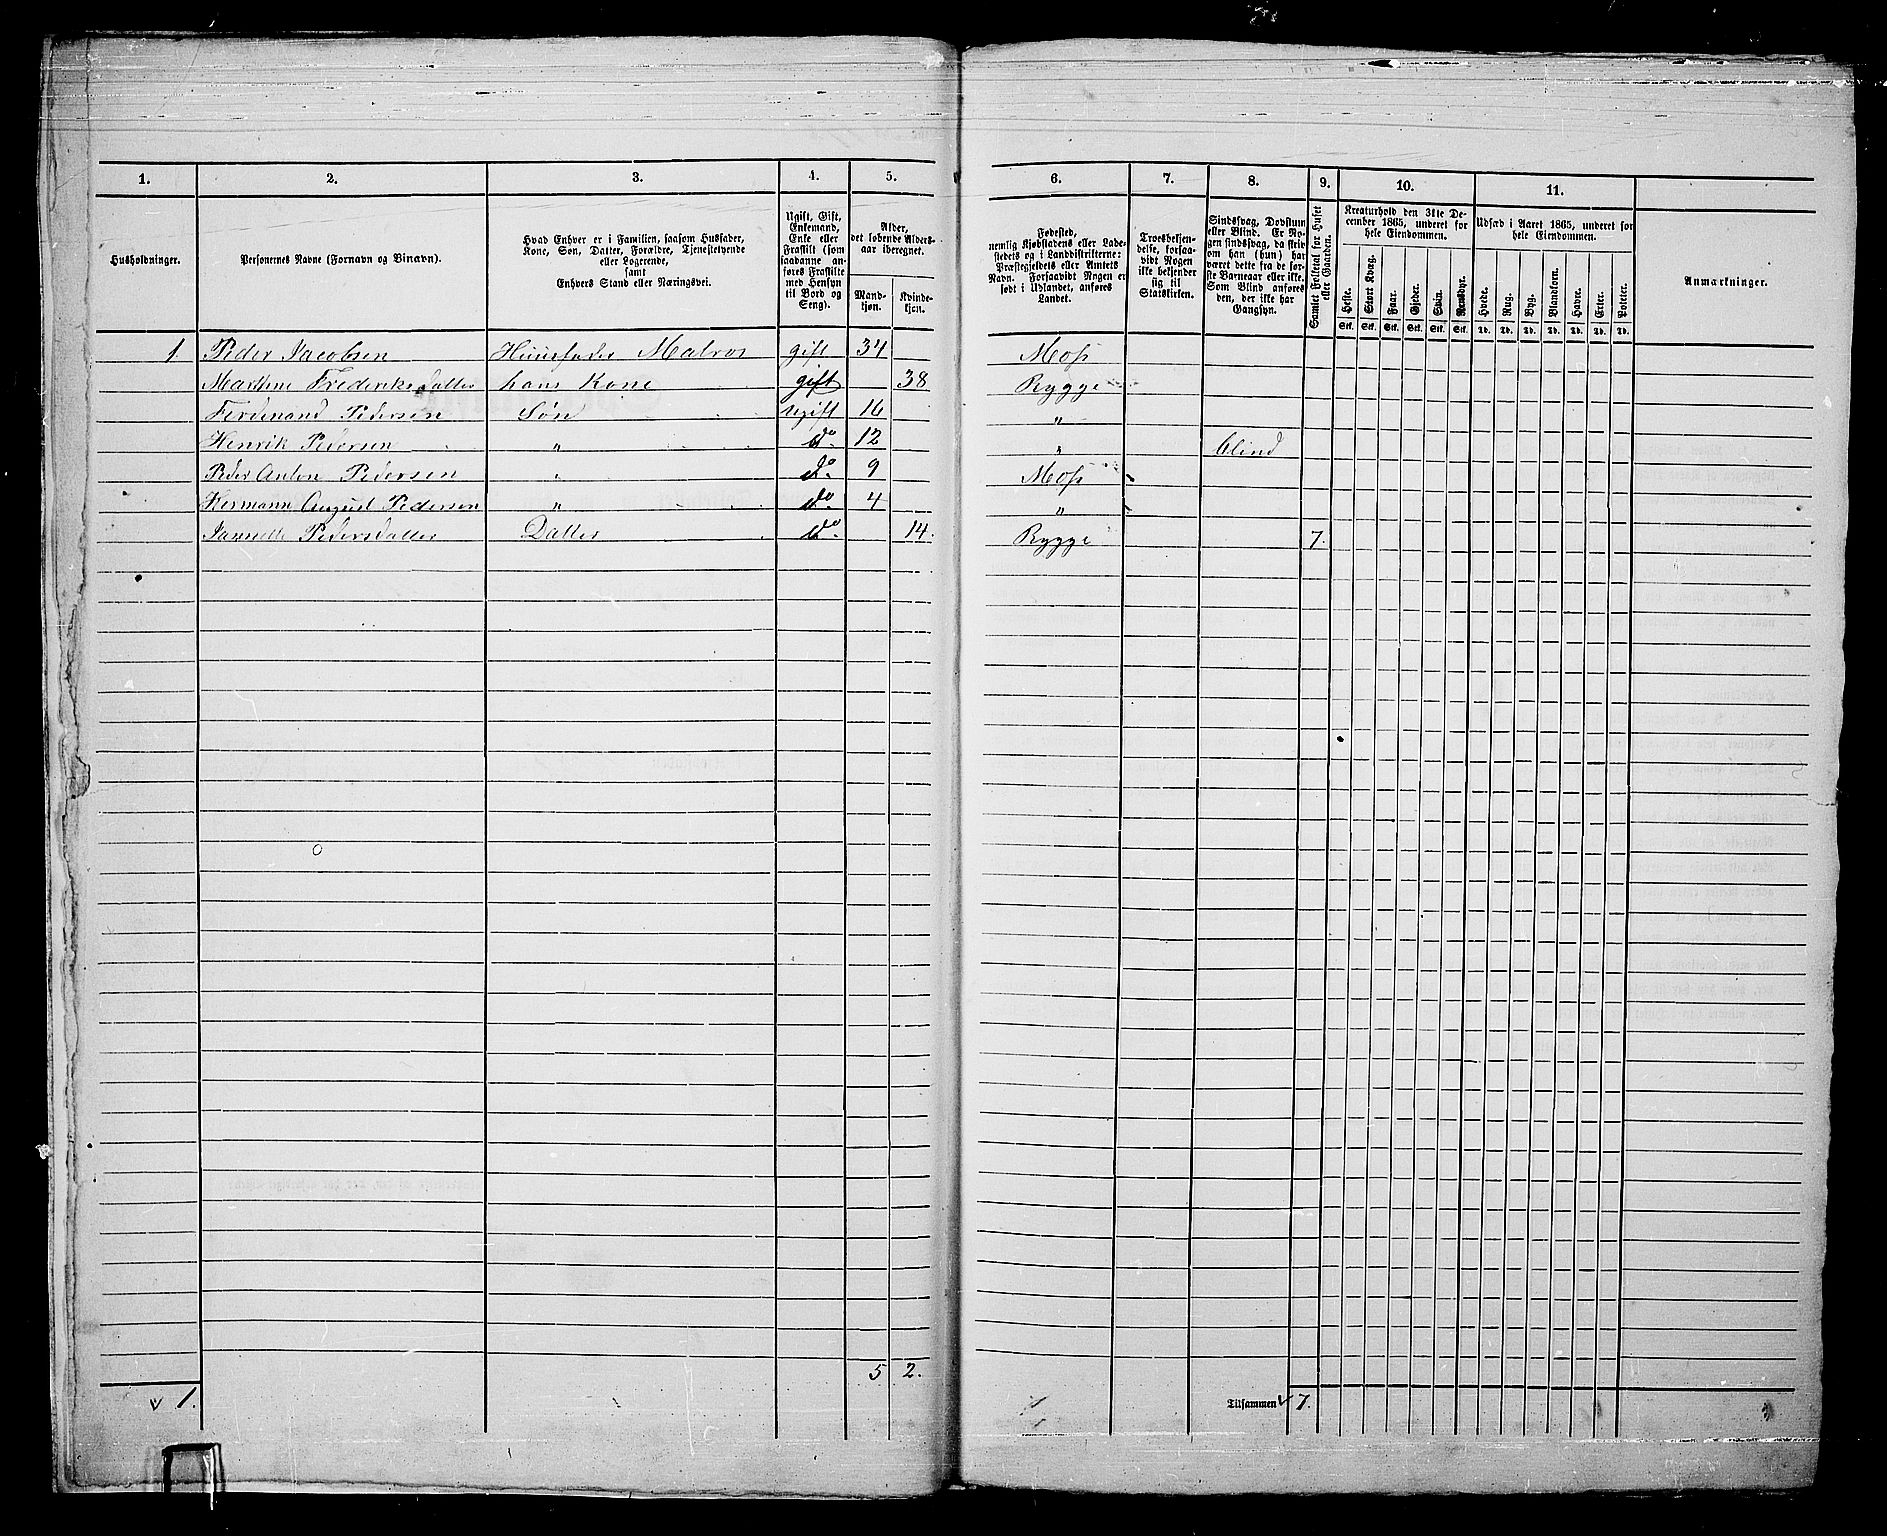 1. 2. 3. 4. 5. 6. 7. 8. 9. 10. 11.
Husholdninger.
Personernes Navne (Fornavn og Binavn).
Hvad Enhver er i Familien, saasom Husfader,
Kone, Søn, Datter, Forældre, Tjenestetyende
eller Logerende,
samt
Enhvers Stand eller Næringsvei.
Ugift, Gift,
Enkemand,
Enke eller
Fraskilt (som
saadanne an-
føres Fraskilte
med Hensyn
til Bord og
Seng).
Alder,
det løbende Alders-
aar iberegnet.
Mand-
kjøn.
Kvinde-
kjøn.
Fødested,
nemlig Kjøbstadens eller Lade-
stedets og i Landdistrikterne:
Præstegjeldets eller Amtets
Navn. Forsaavidt Nogen er
født i Udlandet, anføres
Landet.
Troesbekjen-
delse, forsaa-
vidt Nogen
ikke bekjender
sig til
Statskirken.
Sindssvag, Døvstum
eller Blind. Er No-
gen sindssvag, da skriv
om han (hun) har
været dette fra de før-
ste Barneaar eller ikke.
Som Blind anføres
den, der ikke har
Gangsyn.
Samlet Folketal for Huset
eller Gaarden.
Kreaturhold den 31te De-
cember 1865, underet for
hele Eiendommen.
Heste. Stort Kvæg. Faar. Gjeder. Svin. Rensdyr.
Stk. Stk. Stk. Stk. Stk. Stk.
Udsæd i Aaret 1865, underet for
hele Eiendommen.
Hvede. Rug. Byg. Blandkorn. Havre. Erter. Poteter.
Td. Td. Td. Td. Td. Td. Td.
Anmærkninger.
1. Peder Jacobsen Huusfader Matros gift 34 Moss
Marthine Frederiksdatter hans Kone gift 38 Rygge
Ferdinand Pedersen Søn ugift 16 "
Henrik Pedersen " do. 12 " blind
Peder Anton Pedersen " do. 9 Moss
Hermann August Pedersen " do. 4 "
Jannette Pedersdatter Datter do. 14. Rygge 7.
5 2.
1.
Tilsammen 7.